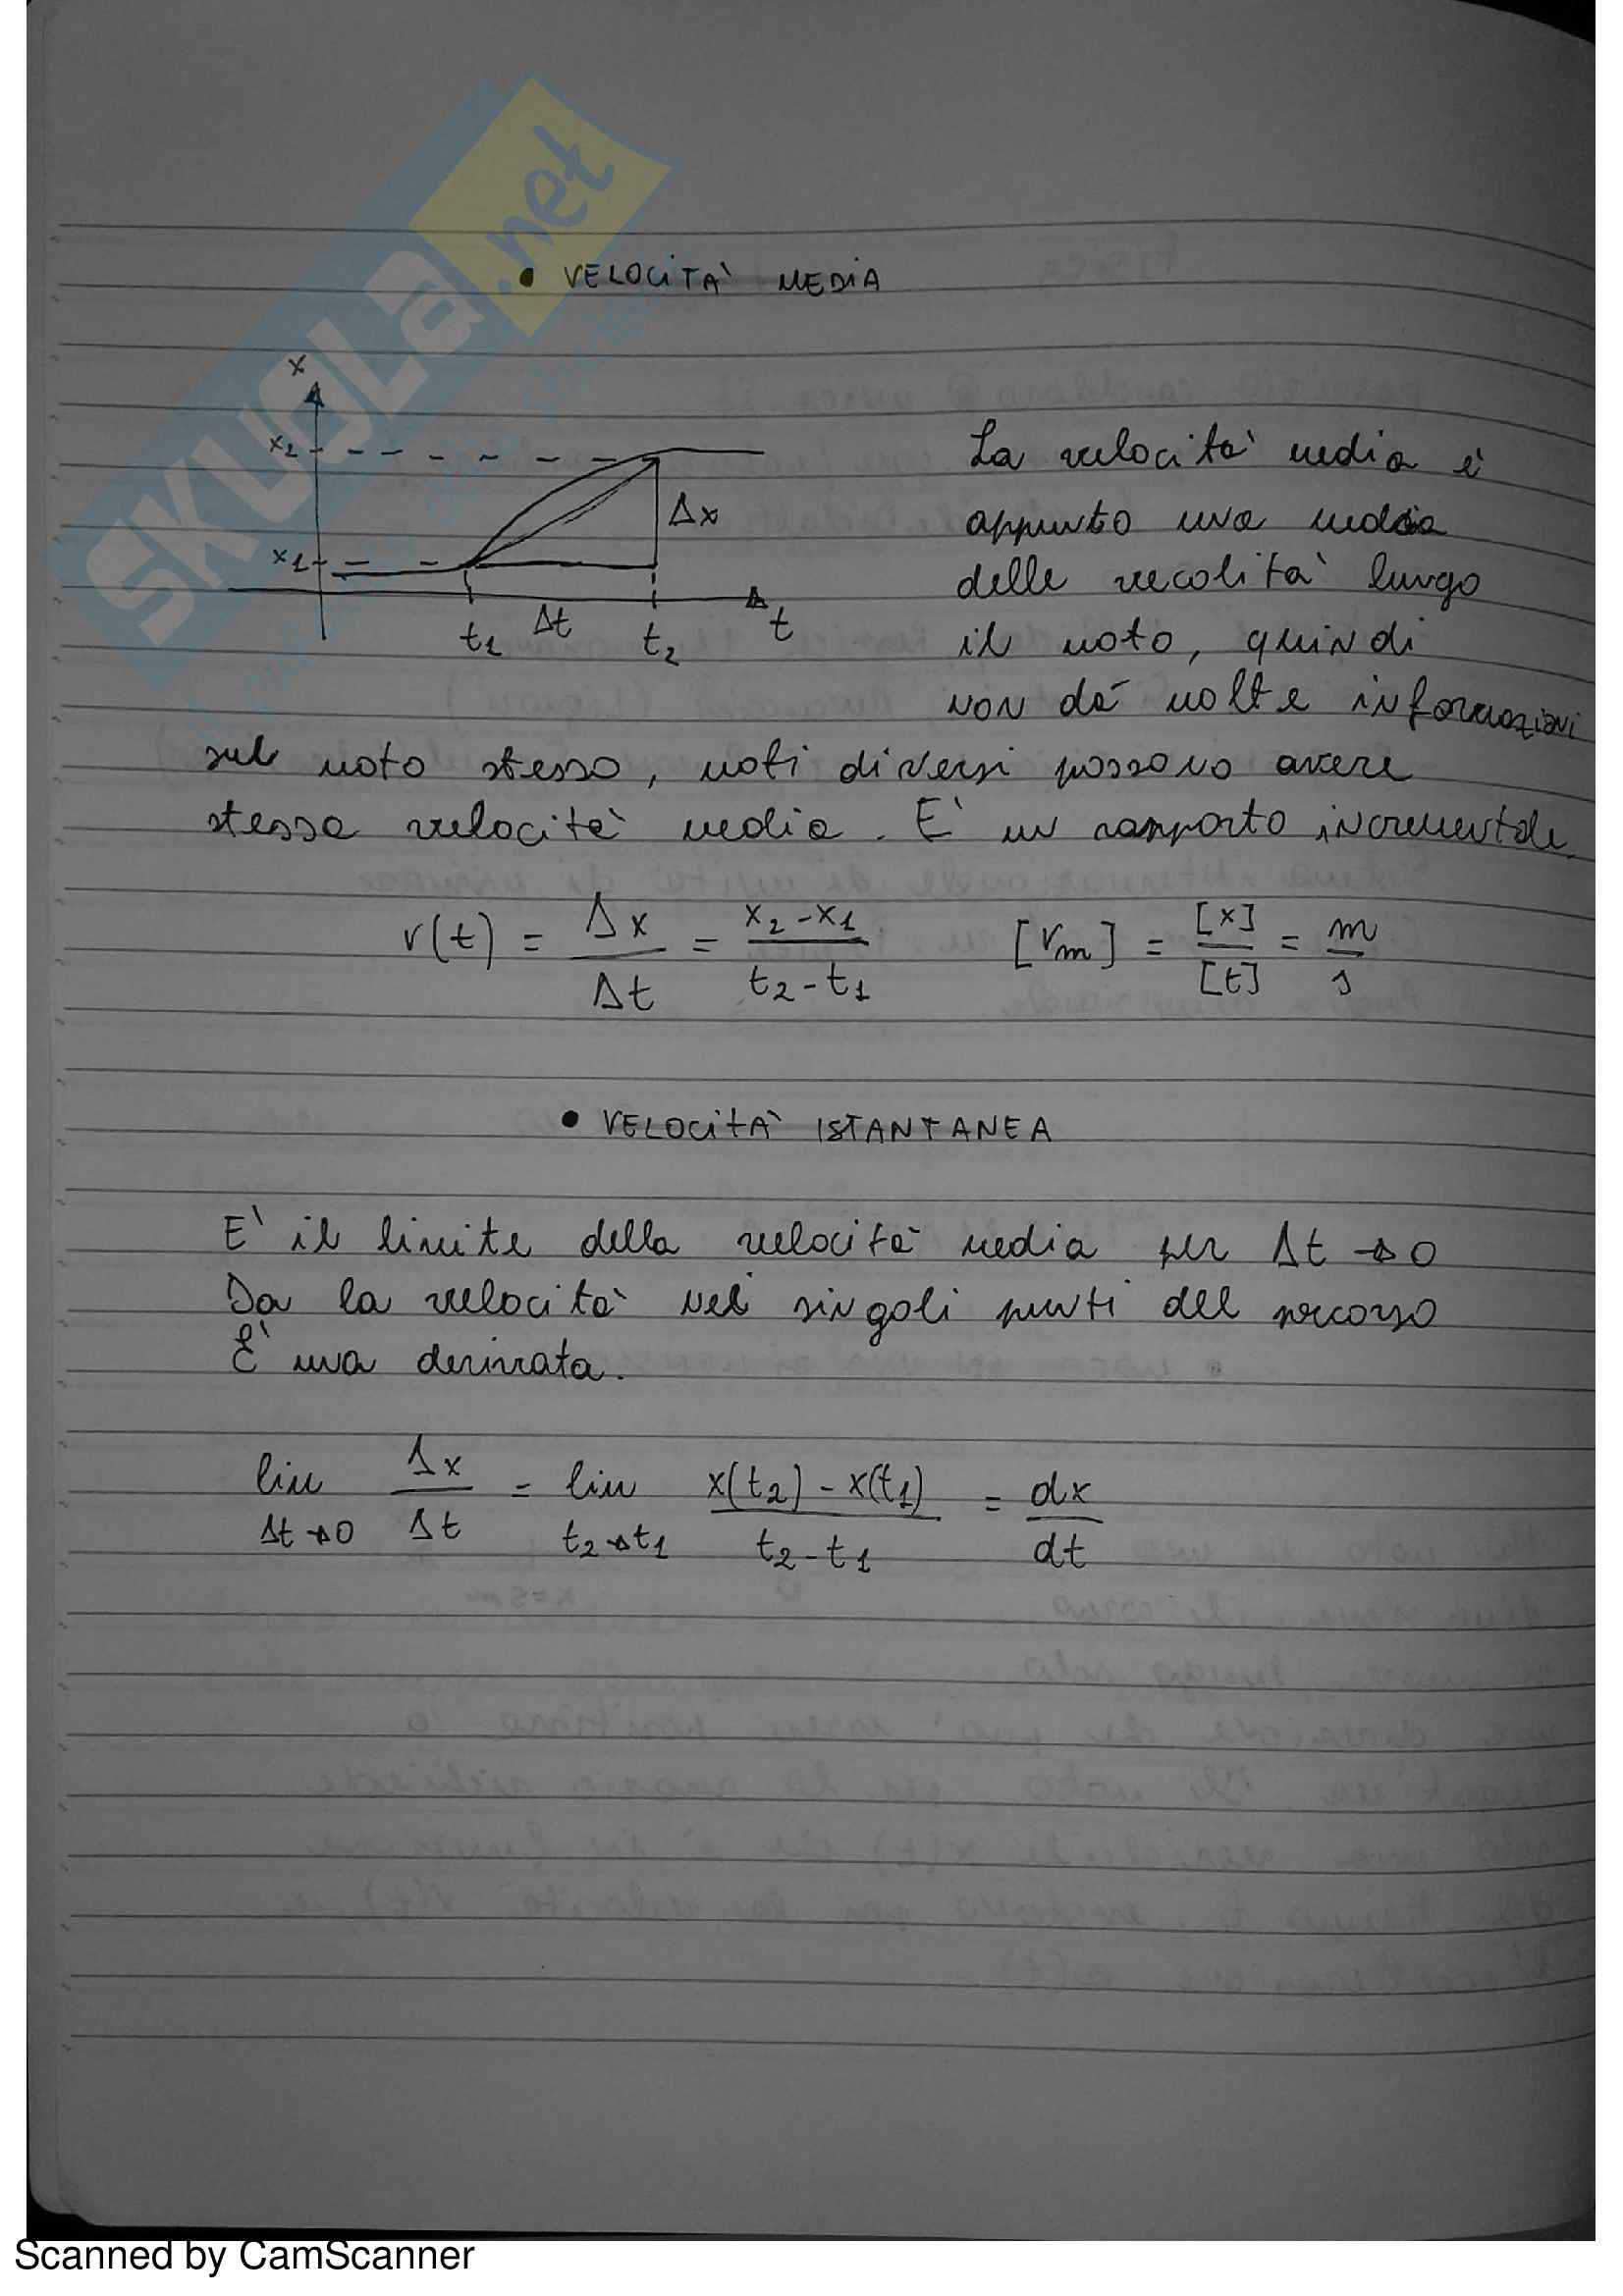 SKUOLa.net
• VELOCITA' MEDIA
x
x2
x1
Δx
t1
Δt
t2
t
La velocità media è
appunto una media
delle vecolità lungo
il moto, quindi
non dà molte informazioni
sul moto stesso, moti diversi possono avere
stessa velocità media. E' un rapporto incrementale.
v(t) = Δx/Δt = (x2-x1)/(t2-t1)   [vm] = [x]/[t] = m/s
• VELOCITÀ ISTANTANEA
E' il limite della velocità media per Δt → 0
Da la velocità nei singoli punti del percorso
E' una derivata.
lim Δt→0 Δx/Δt = lim t2→t1 (x(t2) - x(t1))/(t2-t1) = dx/dt
Scanned by CamScanner